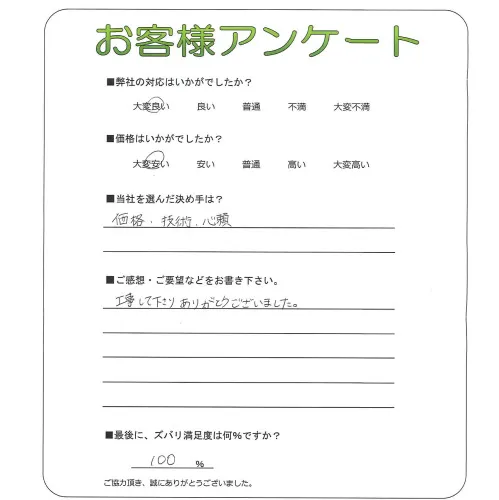 お客様アンケート
■弊社の対応はいかがでしたか？
大変良い 良い 普通 不満 大変不満
■価格はいかがでしたか？
大変安い 安い 普通 高い 大変高い
■当社を選んだ決め手は？
価格、技術、心頼
■ご感想・ご要望などをお書き下さい。
工事して下さりありがとうございました。
■最後に、ズバリ満足度は何％ですか？
100 %
ご協力頂き、誠にありがとうございました。